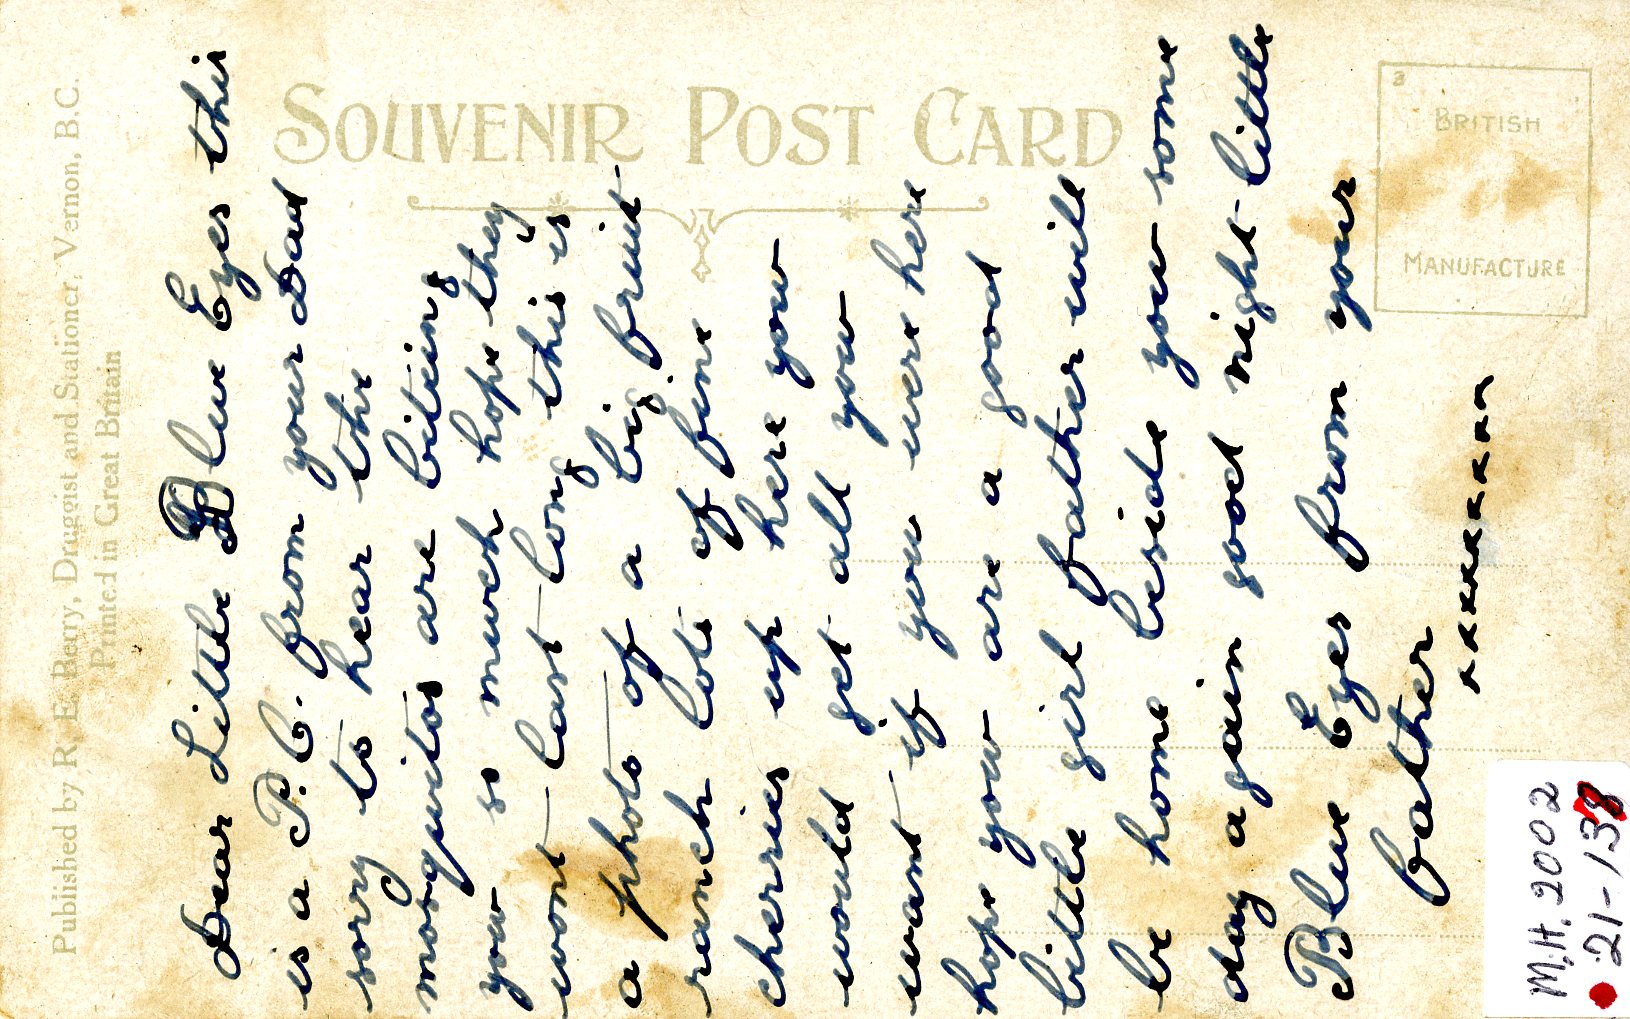 SOUVENIR POST CARD
BRITISH
MANUFACTURE
Published by R. E. Berry, Druggist and Stationer, Vernon, B.C.
Printed in Great Britain
Dear Little Blue Eyes this
is a P.C. from your Dad
sorry to hear the
mosquitos are biteing
you so much hope they
wont last long this is
a photo of a big fruit
ranch lots of fine
cherries up here you
would get all you
want if you were here
hope you are a good
little girl father will
be home beside you some
day again good night little
Blue Eyes from your
father
xxxxxxxxx
M.H. 2002
21-138